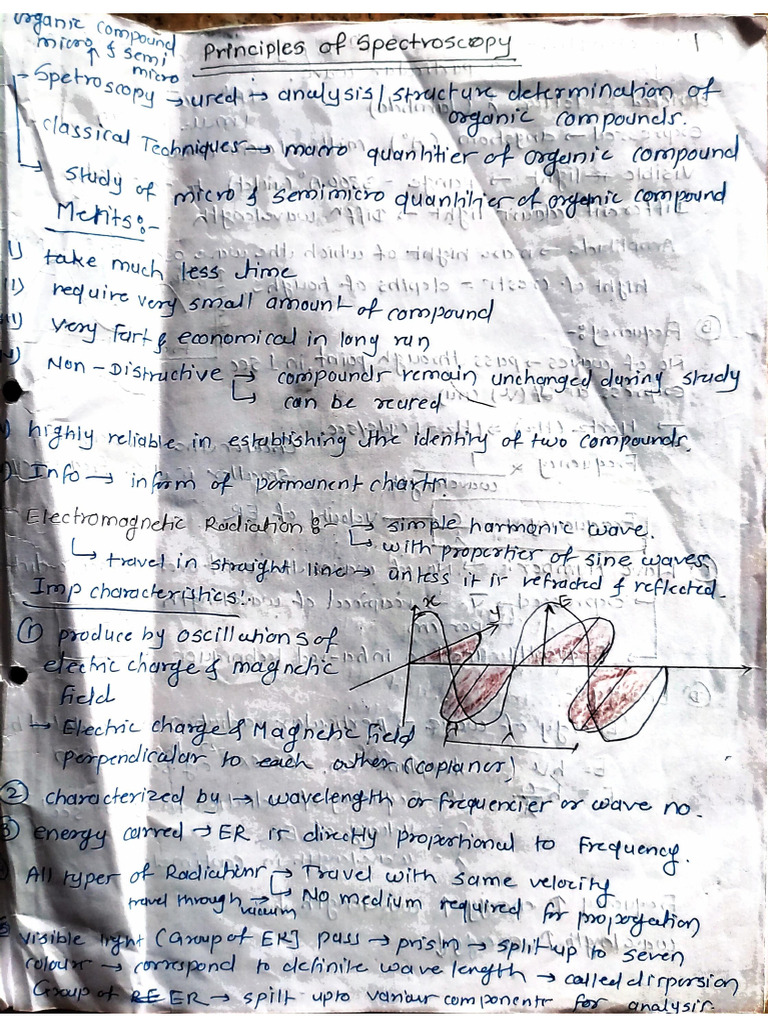 organic compound
micro & semi
micro
Principles of Spectroscopy
1
Spetroscopy → used → analysis/structure determination of
organic compounds.
classical Techniques → macro quantities of organic compound
study of micro & semimicro quantities of organic compound
Merits:-
I) take much less time
II) require very small amount of compound
III) very fast & economical in long run
IV) Non-Distructive → compounds remain unchanged during study
↳ can be reused
) highly reliable in establishing the identity of two compounds.
) Info → inform of permanent charts.
Electromagnetic Radiation :- → simple harmonic wave.
↳ with properties of sine waves
↳ travel in straight line → unless it is refracted & reflected.
Imp characteristics:-
x y E
① produce by oscillations of
electric charge & magnetic
field
→ Electric charge & Magnetic Field
perpendicular to each other (coplaner)
λ
② characterized by → wavelength or frequencies or wave no.
③ energy carred → ER is directly proportional to Frequency.
) All types of Radiations → Travel with same velocity
travel through vacuum → No medium required for propogation
5 visible light (Group of ER) pass → prism → split up to seven
colours → correspond to definite wave length → called dispersion
Group of ER → spilt upto various components for analysis.